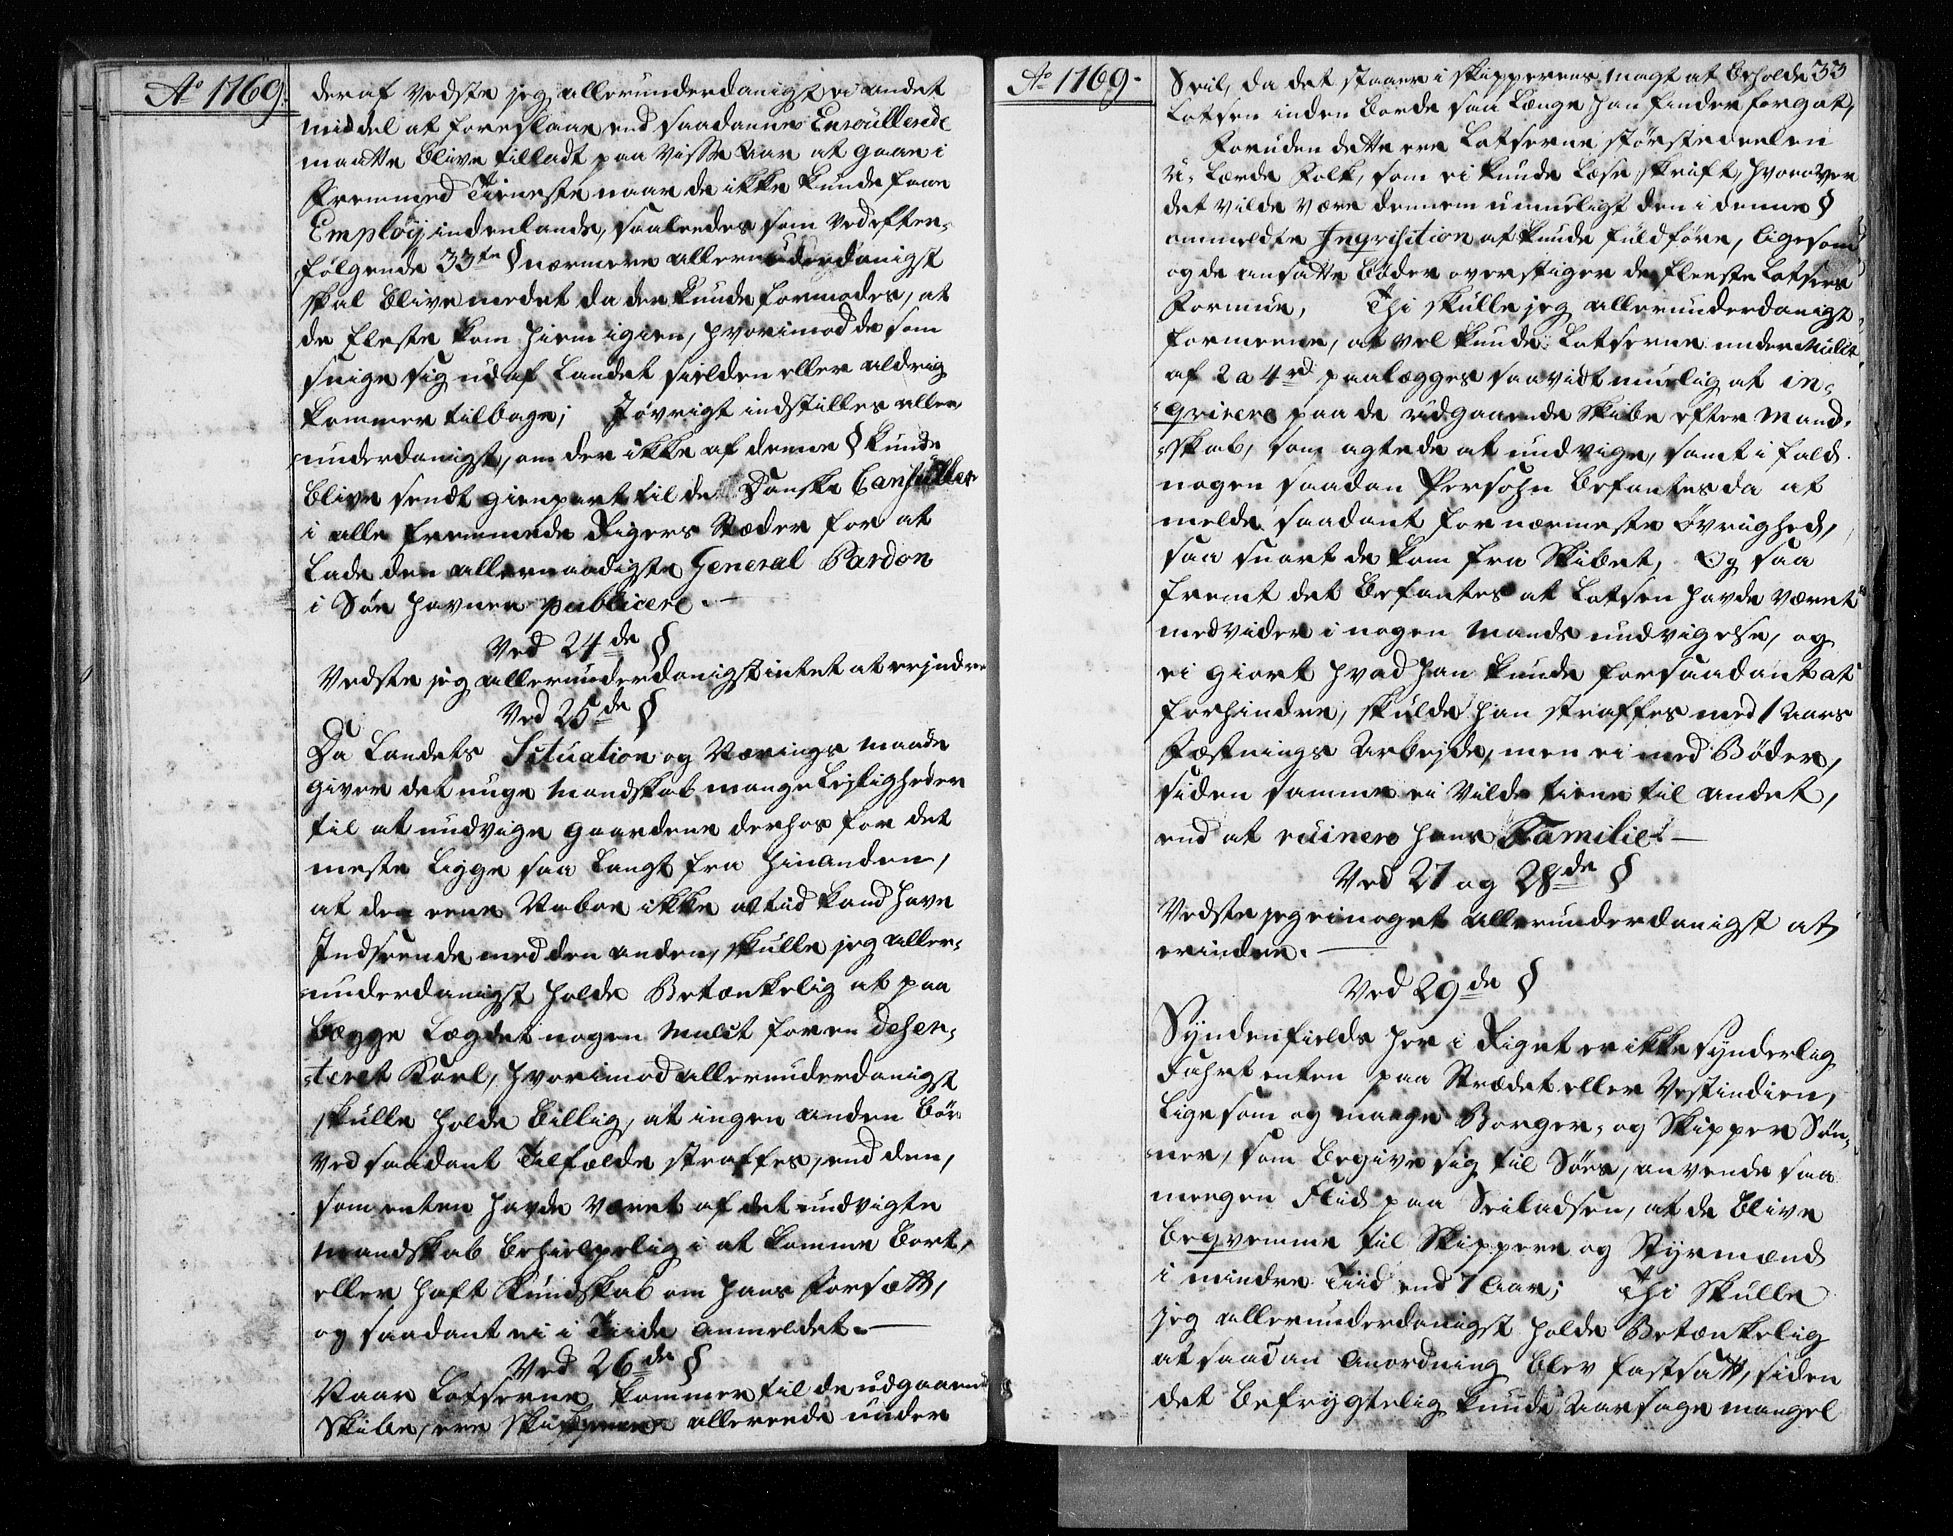 Ao 1769.
deraf vedste jeg allerunderdanigst ei andet
middel at foreslaae, end saadanne Enroullerede
maatte blive tilladt paa visse Aar at gaae i
fremmed Tieneste naar de ikke kunde faae
Employ indenlands, saaledes som ved efter-
følgende 33te § nærmere allerunderdanigst
skal blive meldet da der kunde formodes, at
de fleste kom hiem igien, hvorimod de som
snige sig ud af Landet sielden eller aldrig
kommer tilbage; Jøvrigt indstilles aller-
underdanigst, om der ikke af denne § kunde
blive sendt gienpart til de Danske Consuller
i alle fremmede Rigers Stæder for at
lade den allernaadigste General Pardon
i Søe Havnene publicere.
Ved 24de §
Vedste jeg allerunderdanigst intet at erjndre
Ved 25de §
Da Landets Situation og Nærings maade
giver det unge Mandskab mange Leyligheder
til at undvige Gaardene derhos for det
meste ligge saa langt fra hinanden,
at den eene Naboe ikke altid kand have
Indseende med den anden, skulle jeg aller-
underdanigst holde Betænkelig at paa
bægge Lægdet nogen Mulct for en deser-
teret Karl, hvorimod allerunderdanigst
skulle holde billig, at ingen anden bør
ved saadant Tilfælde straffes, end den,
som enten havde været af det undvigte
Mandskab behielpelig i at komme bort,
eller haft Kundskab om hans forsætt,
og saadant ei i Tiide anmeldet.
Ved 26de §
Naar Lotserne kommer til de udgaaende
Skibe, ere Skipperne allerede under
Ao 1769.
33
Seil, da det staaer i skipperens magt at beholde
Lotsen inden borde saa længe han finder for got,
Foruden dette ere Lotserne størstedeelen
u-lærde Folk, som ei kunde læse skrift, hvorover
det vilde være dennem umueligt den i denne §
ommeldte Inqvisition at kunde fuldføre, ligesom
og de ansatte bøder overstiger de fleeste Lotsers
Formue, Thi skulle jeg allerunderdanigst
formeene, at vel kunde Lotserne under Mulct
af 2 a 4 rd paalægges saavidt muelig at in-
qvirere paa de udgaaende Skibe efter Mand-
skab, som agtede at undvige, samt i fald
nogen saadan Persohn befantes da at
melde saadant for nærmeste Øvrighed,
saa snart de kom fra Skibet, Og saa
fremt det befantes at Lotsen havde været
medvider i nogen Mands undvigelse, og
ei giort hvad han kunde for saadant at
forhindre, skulde han straffes med 1 Aars
Fæstnings Arbejde, men ei med Bøder,
siden samme ei vilde tiene til andet,
end at ruinere hans Familie.
Ved 27 og 28de §
Vedste jeg ei noget allerunderdanigst at
erindre.
Ved 29de §
Syndenfields her i Riget er ikke synderlig
Fahrt enten paa Strædet eller Vestindien,
ligesom og mange Borger- og Skipper Søn-
ner, som begive sig til Søes, anvende saa
meegen Fliid paa Seiladsen, at de blive
beqvemme til Skippere og Styrmænd
i mindre Tiid end 7 Aar; Thi skulle
jeg allerunderdanigst holde Betænkelig
at saadan Anordning blev fastsatt, siden
det befrygtelig kunde Aarsage mangel